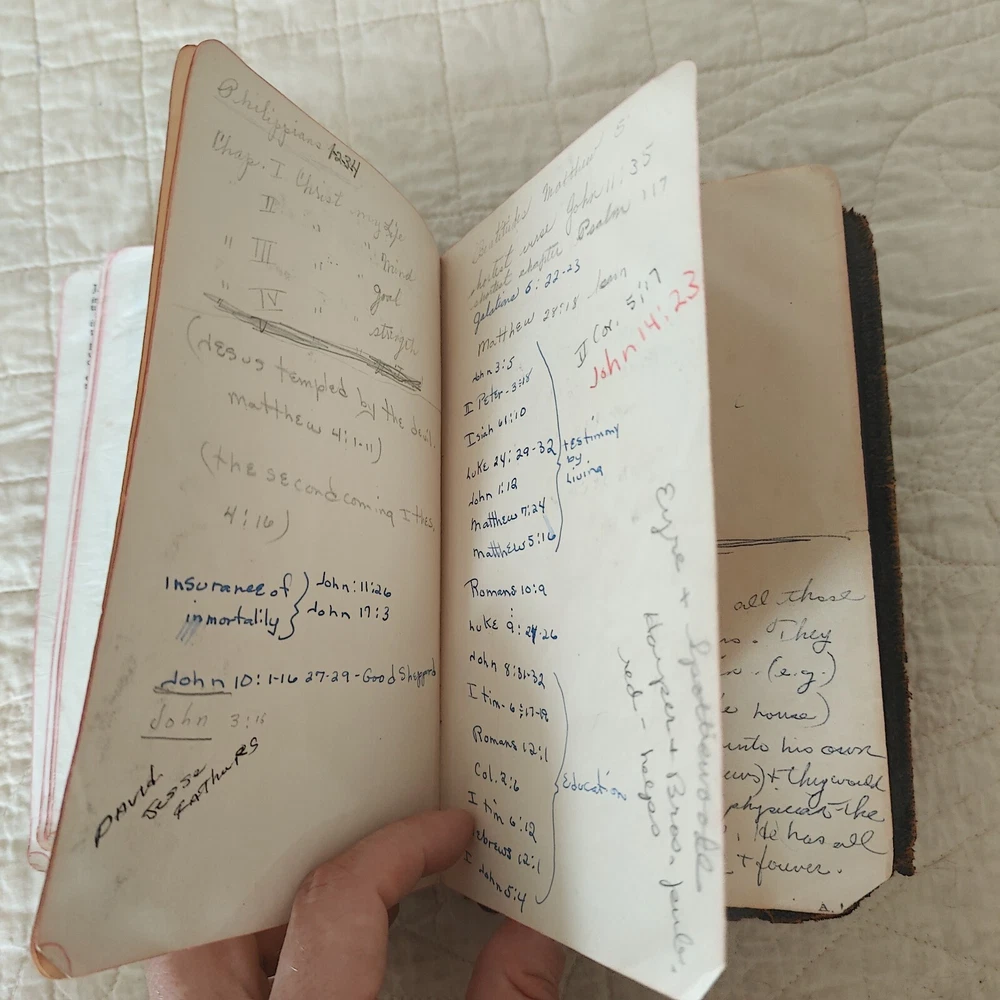 Philippians 1234
Chap. I Christ my life
II " " mind
" III " " goal
" IV " " strength
(Jesus tempted by the devil.
Matthew 4:1-11)
(the second coming I thes.
4:16)
insurance of } John: 11:26
inmortality } John 17:3
John 10:1-16 27-29-Good Sheppard
John 3:16
DAVID.
Jesse
FATHURS
Beatitudes Matthew 5
shortest verse John 11:35
shortest chapter Psalm 117
galatians 5:22-23
Matthew 28:18 learn
II Cor. 5:17
John 14:23
John 3:5
II Peter-3:18
Isiah 61:10
Luke 24:29-32
John 1:12
Matthew 7:24
Matthew 5:16
testimony
by
living
Romans 10:9
Luke 9:24-26
John 8:31-32
I tim-6:17-19
Romans 12:1
Col. 2:6
I tim 6:12
Hebrews 12:1
I John 5:4
Education
Eyre + Spottiswoode
Harper + Bros. pub.
red - helps
all those
They
(e.g.)
house)
into his own
+ they would
physician the
He has all
+ forever.
A.